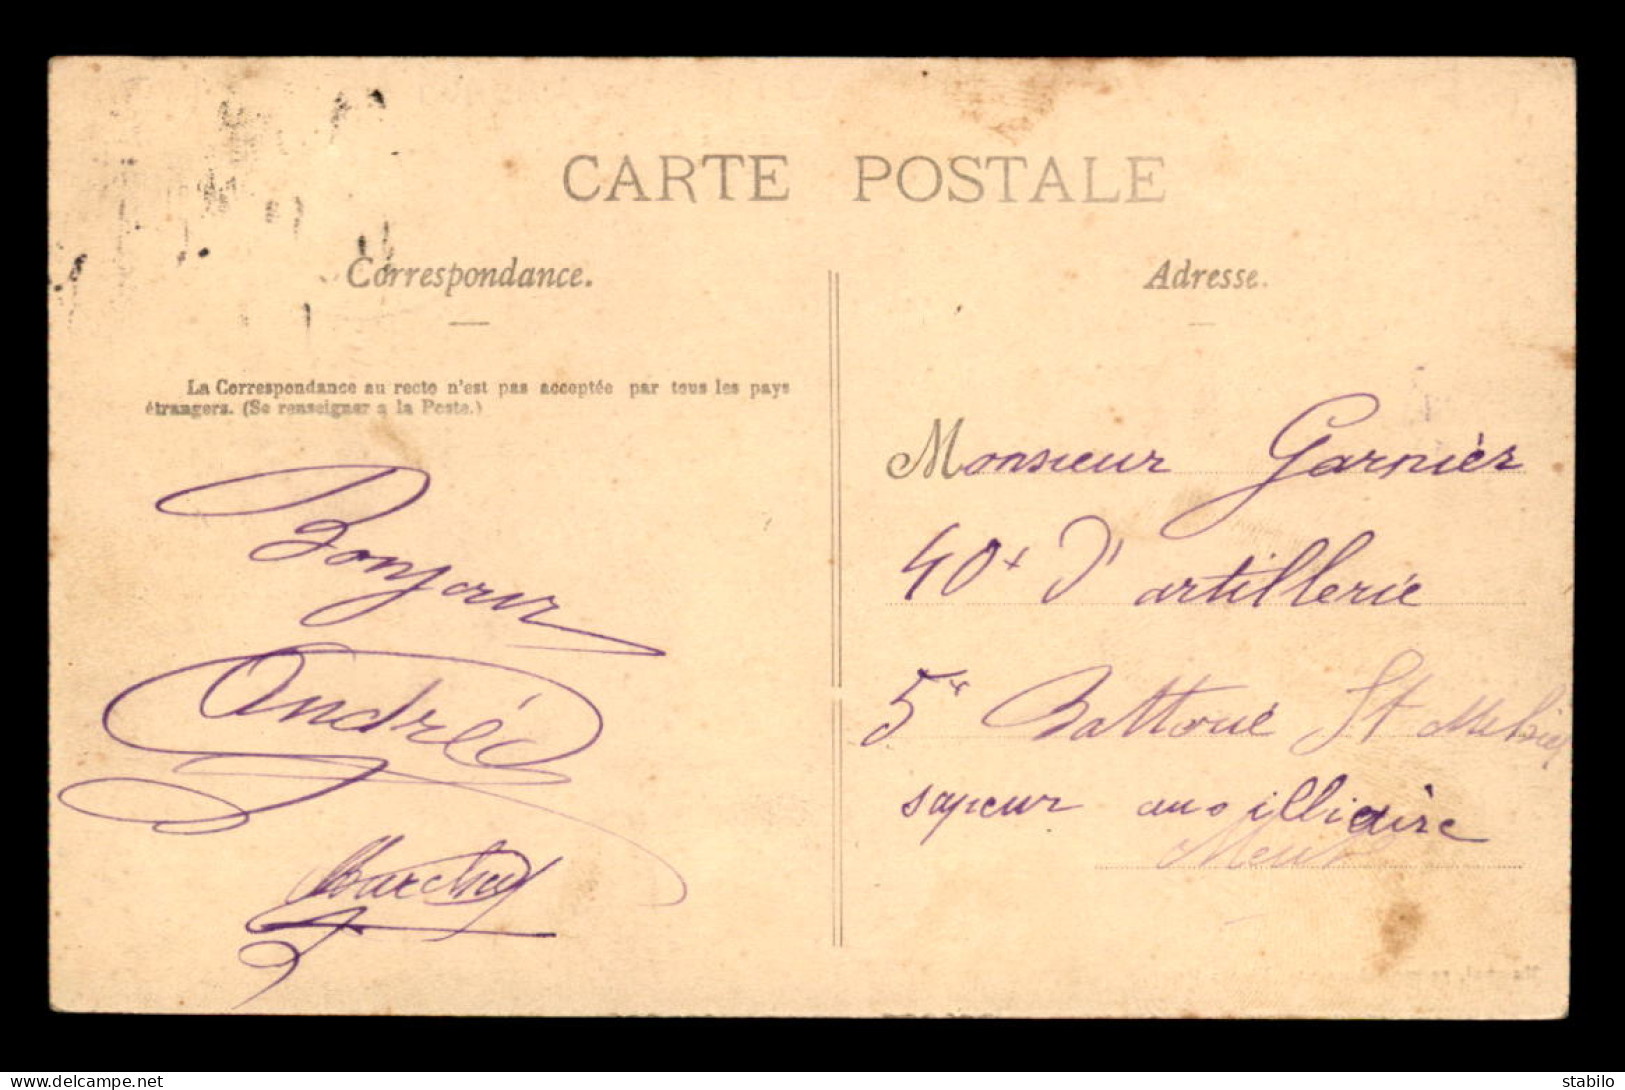 CARTE POSTALE
Correspondance.
La Correspondance au recto n'est pas acceptée par tous les pays
étrangers. (Se renseigner a la Poste.)
Bonjour
André
Adresse.
Monsieur Garnier
40e d'artillerie
5e Battrie St Mihiel
sapeur auxilliaire
Meuse
stabilo